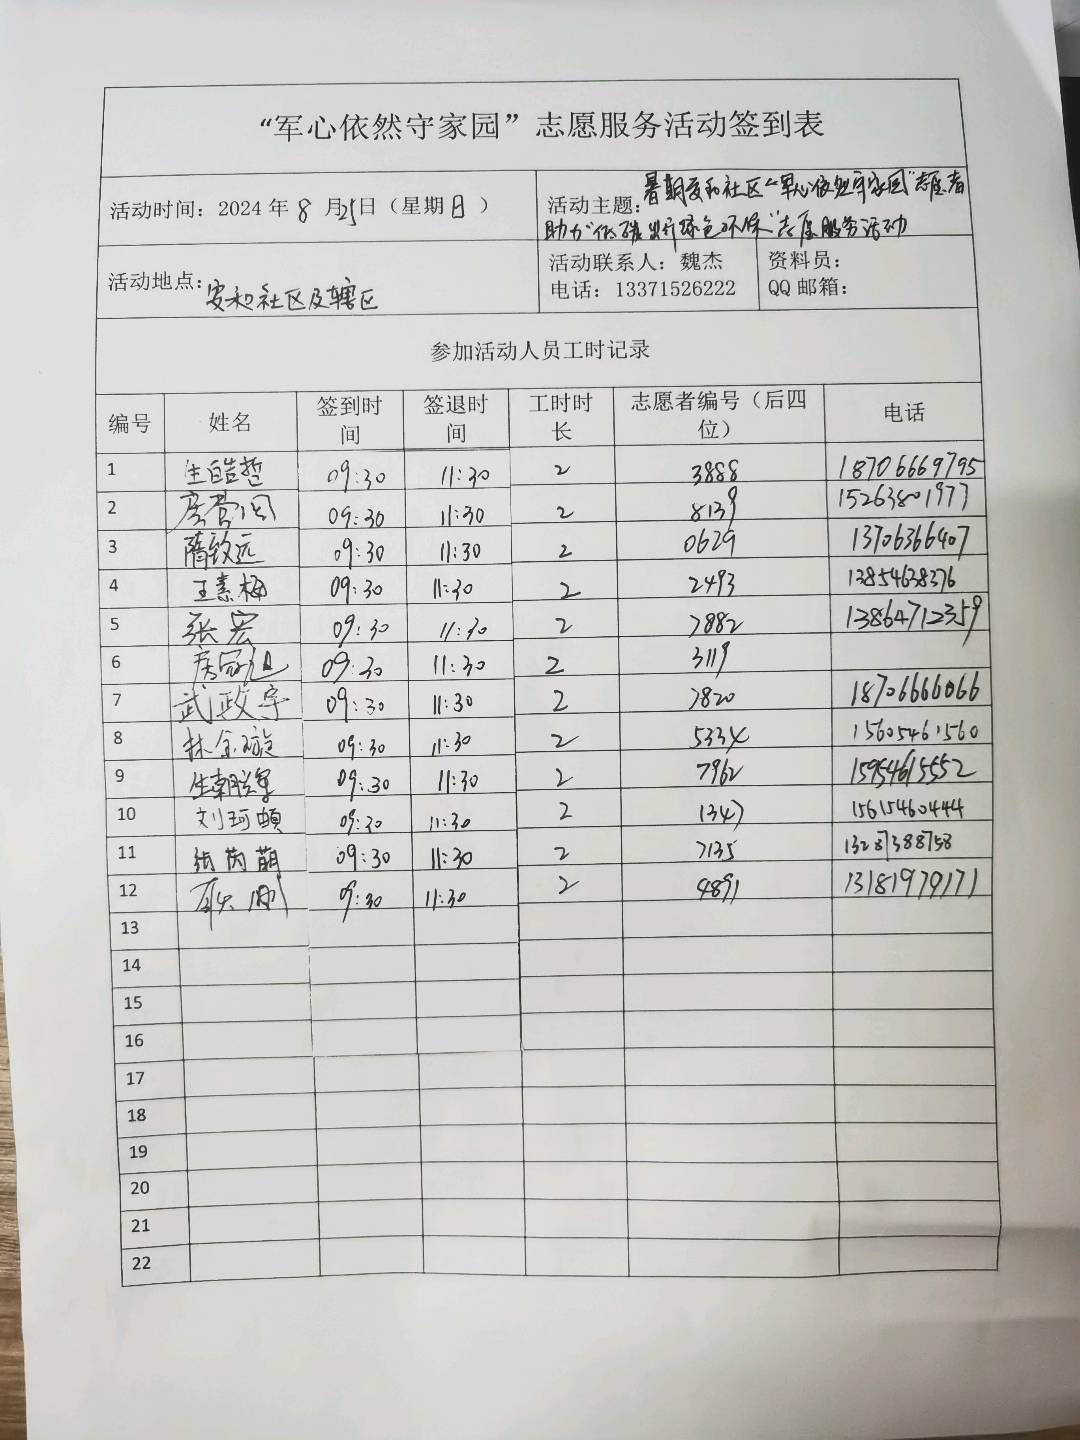 “军心依然守家园”志愿服务活动签到表
活动时间：2024年8月25日（星期日）
活动主题：暑期安和社区“军心依然守家园”志愿者
助力“低碳出行绿色环保”志愿服务活动
活动地点：安和社区及辖区
活动联系人：魏杰
电话：13371526222
资料员：
QQ邮箱：
参加活动人员工时记录
编号 姓名 签到时间 签退时间 工时时长 志愿者编号（后四位） 电话
1 生皓哲 09:30 11:30 2 3888 18706669795
2 09:30 11:30 2 8139 15263801977
3 隋致远 09:30 11:30 2 0629 13706366407
4 王素梅 09:30 11:30 2 2493 13854638376
5 张宏 09:30 11:30 2 7882 13864712359
6 09:30 11:30 2 3119
7 武政宇 09:30 11:30 2 7820 18706666066
8 林金璇 09:30 11:30 2 5334 15605461560
9 09:30 11:30 2 7962 15954615552
10 刘珂頔 09:30 11:30 2 1347 15615460444
11 张芮萌 09:30 11:30 2 7135 13287388758
12 09:30 11:30 2 4891 13181979171
13
14
15
16
17
18
19
20
21
22